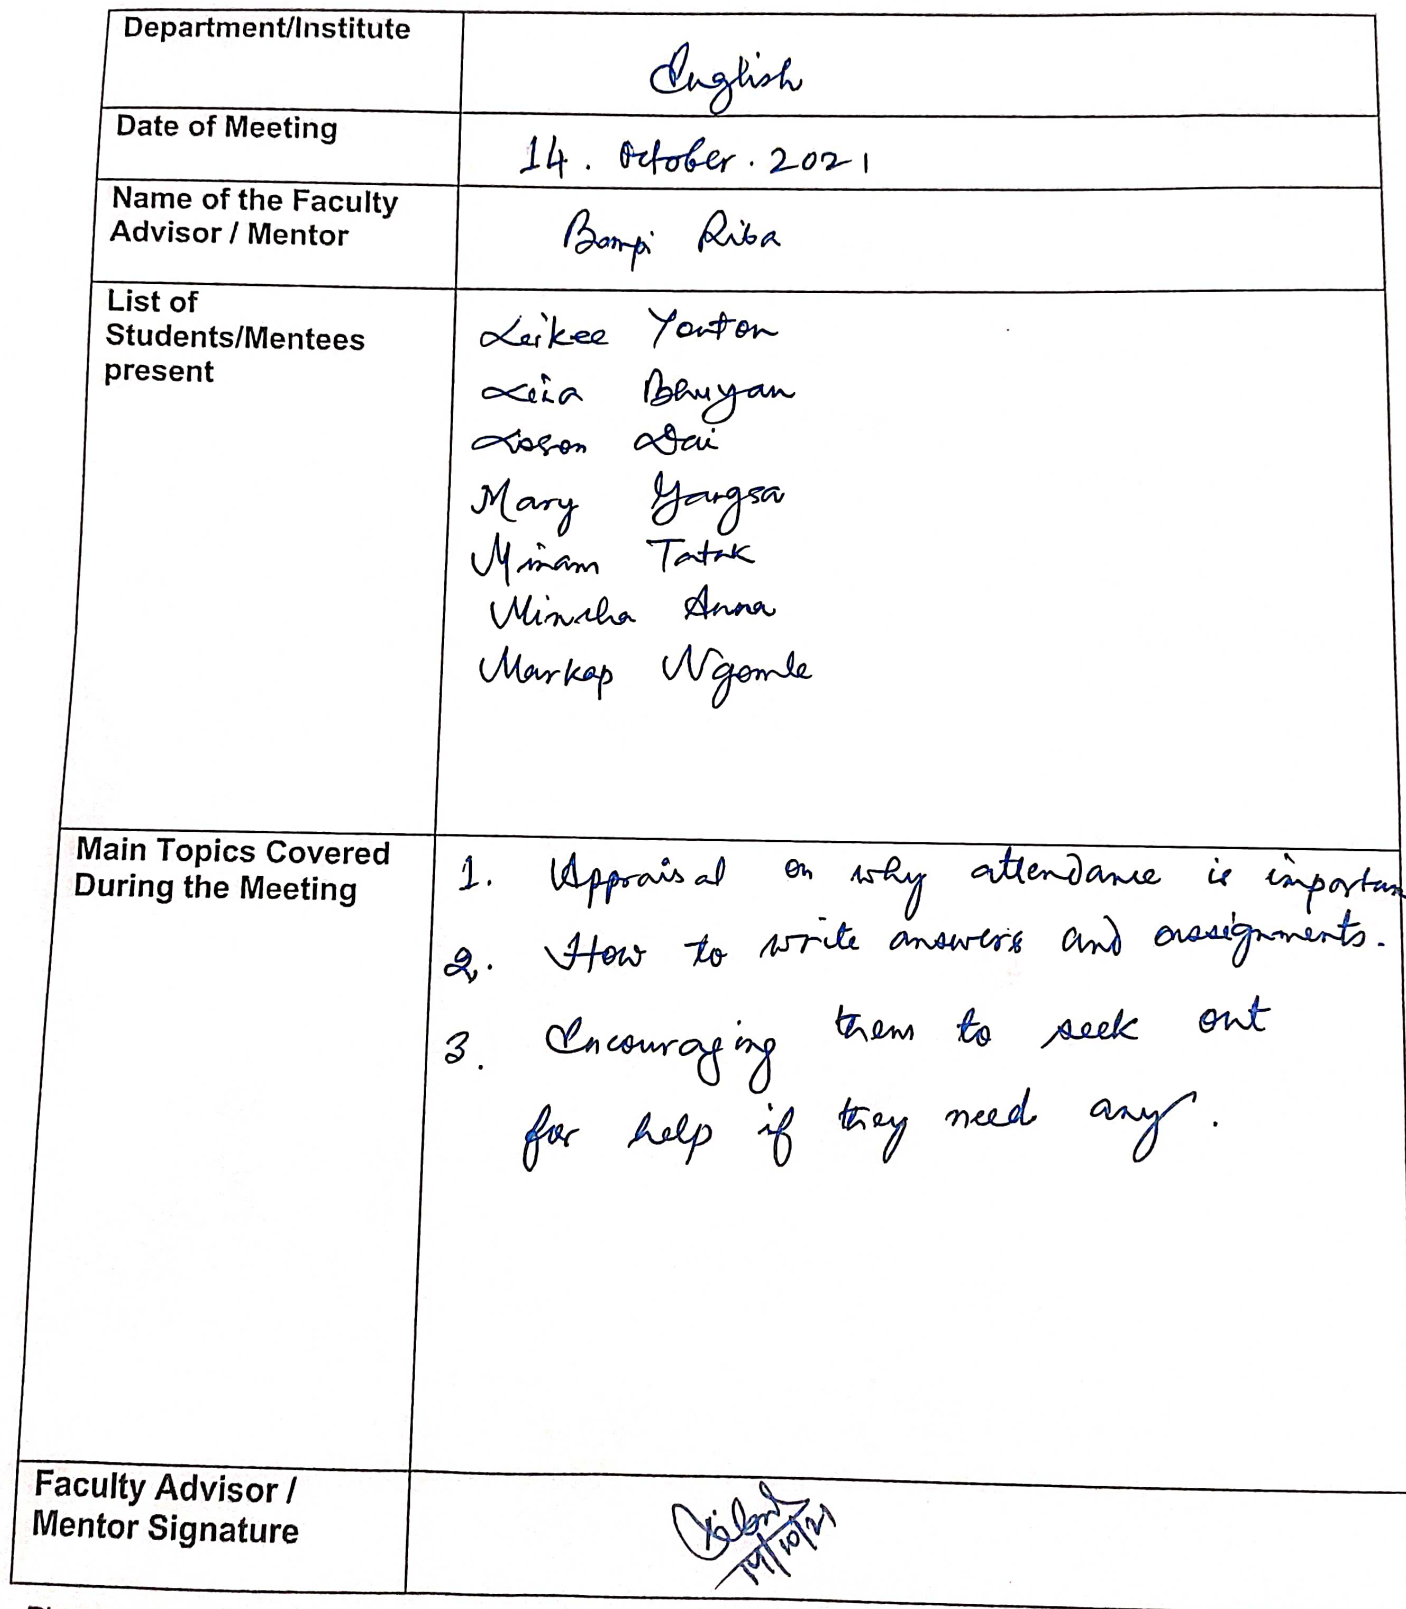 Department/Institute
English
Date of Meeting
14. October. 2021
Name of the Faculty
Advisor / Mentor
Bompi Riba
List of
Students/Mentees
present
Leikee Yonton
Leia Bhuyan
Dai
Mary Yangsa
Minam Tatak
Mincha Anna
Markap Ngomle
Main Topics Covered
During the Meeting
1. Appraisal on why attendance is importan
2. How to write answers and assignments.
3. Encouraging them to seek out
for help if they need any.
Faculty Advisor /
Mentor Signature
14/10/21